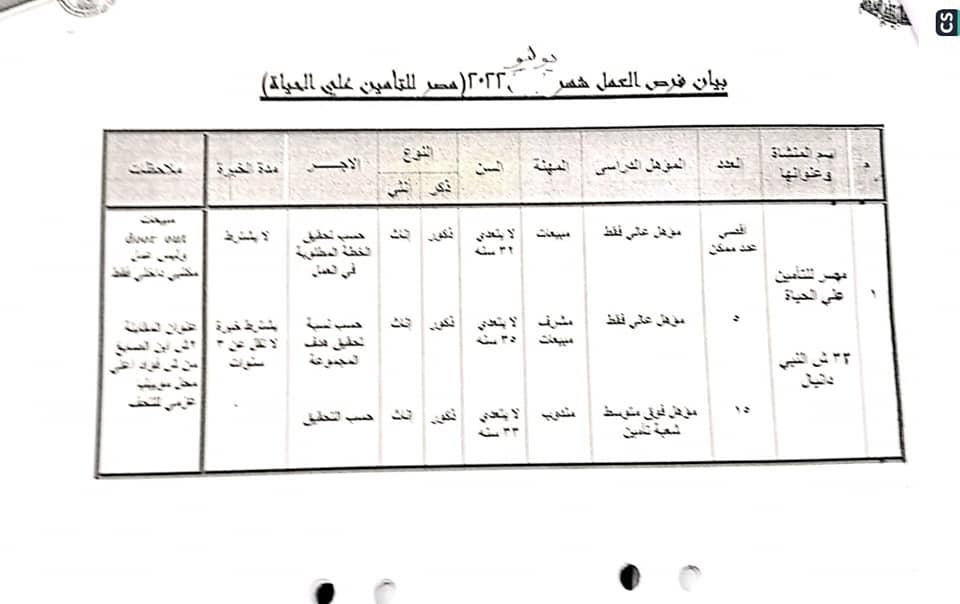 CS
يوليو
بيان فرص العمل شهر ٢٠٢٢ (مصر للتأمين علي الحياة)
م
اسم المنشاة
وعنوانها
العدد
المؤهل الدراسى
المهنة
السن
النوع
ذكر
أنثي
الاجر
مدة الخبرة
ملاحظت
١
مهصر للتأمين
علي الحياة
٣٣ ش النبي
دانيال
أقصي
عدد ممكن
مؤهل عالي فقط
مبيعات
لا يتعدي
٣٢ سنه
ذكور
إناث
حسب تحقيق
الخطة المطلوبة
في العمل
لا يشترط
مبيعات
door out
وليس عمل
مكتبي داخلي فقط
٥
مؤهل عالي فقط
مشرف
مبيعات
لا يتعدي
٣٥ سنه
ذكور
إناث
حسب نسبة
تحقيق هدف
المجموعة
يشترط خبرة
لا تقل عن ٣
سنوات
عنوان المقابلة
٢ش ابن الصايغ
من ش فؤاد اعلي
محل موبيليا
عزمي للتحف
١٥
مؤهل فوق متوسط
شعبة تأمين
مندوب
لا يتعدي
٣٣ سنه
ذكور
إناث
حسب التحقيق